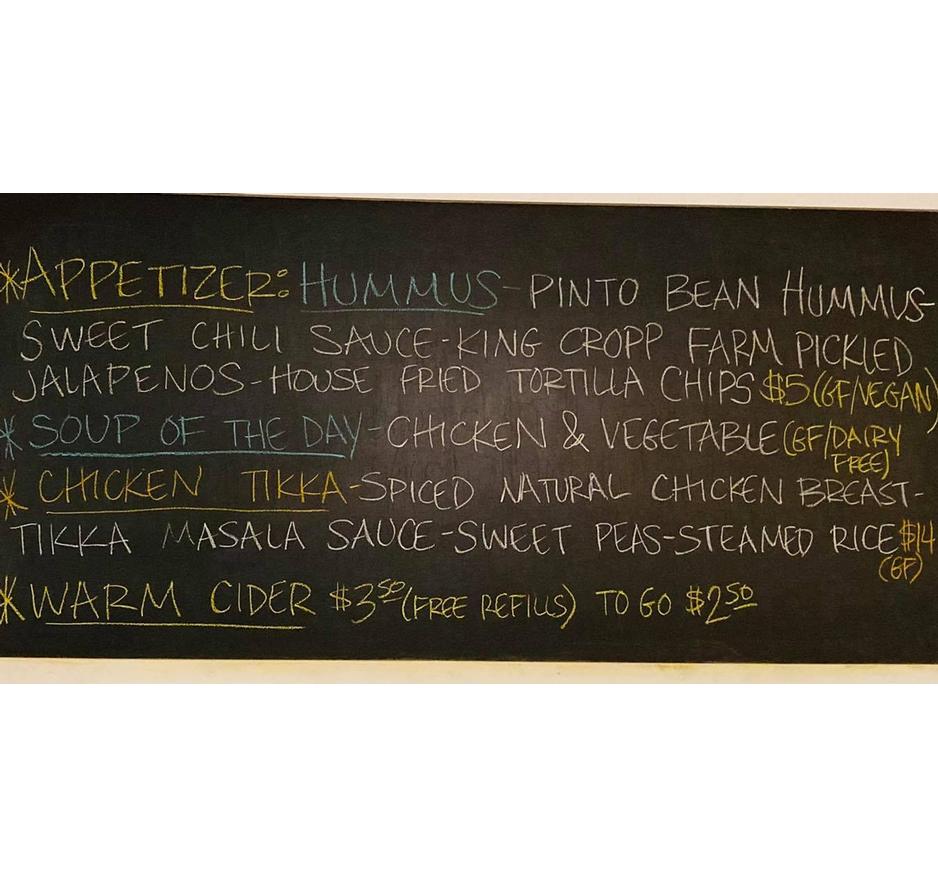 *APPETIZER: HUMMUS-PINTO BEAN HUMMUS-
SWEET CHILI SAUCE-KING CROPP FARM PICKLED
JALAPENOS-HOUSE FRIED TORTILLA CHIPS $5 (GF/VEGAN)
*SOUP OF THE DAY-CHICKEN & VEGETABLE (GF/DAIRY
FREE)
*CHICKEN TIKKA-SPICED NATURAL CHICKEN BREAST-
TIKKA MASALA SAUCE-SWEET PEAS-STEAMED RICE $14
(GF)
*WARM CIDER $3.50 (FREE REFILLS) TO GO $2.50